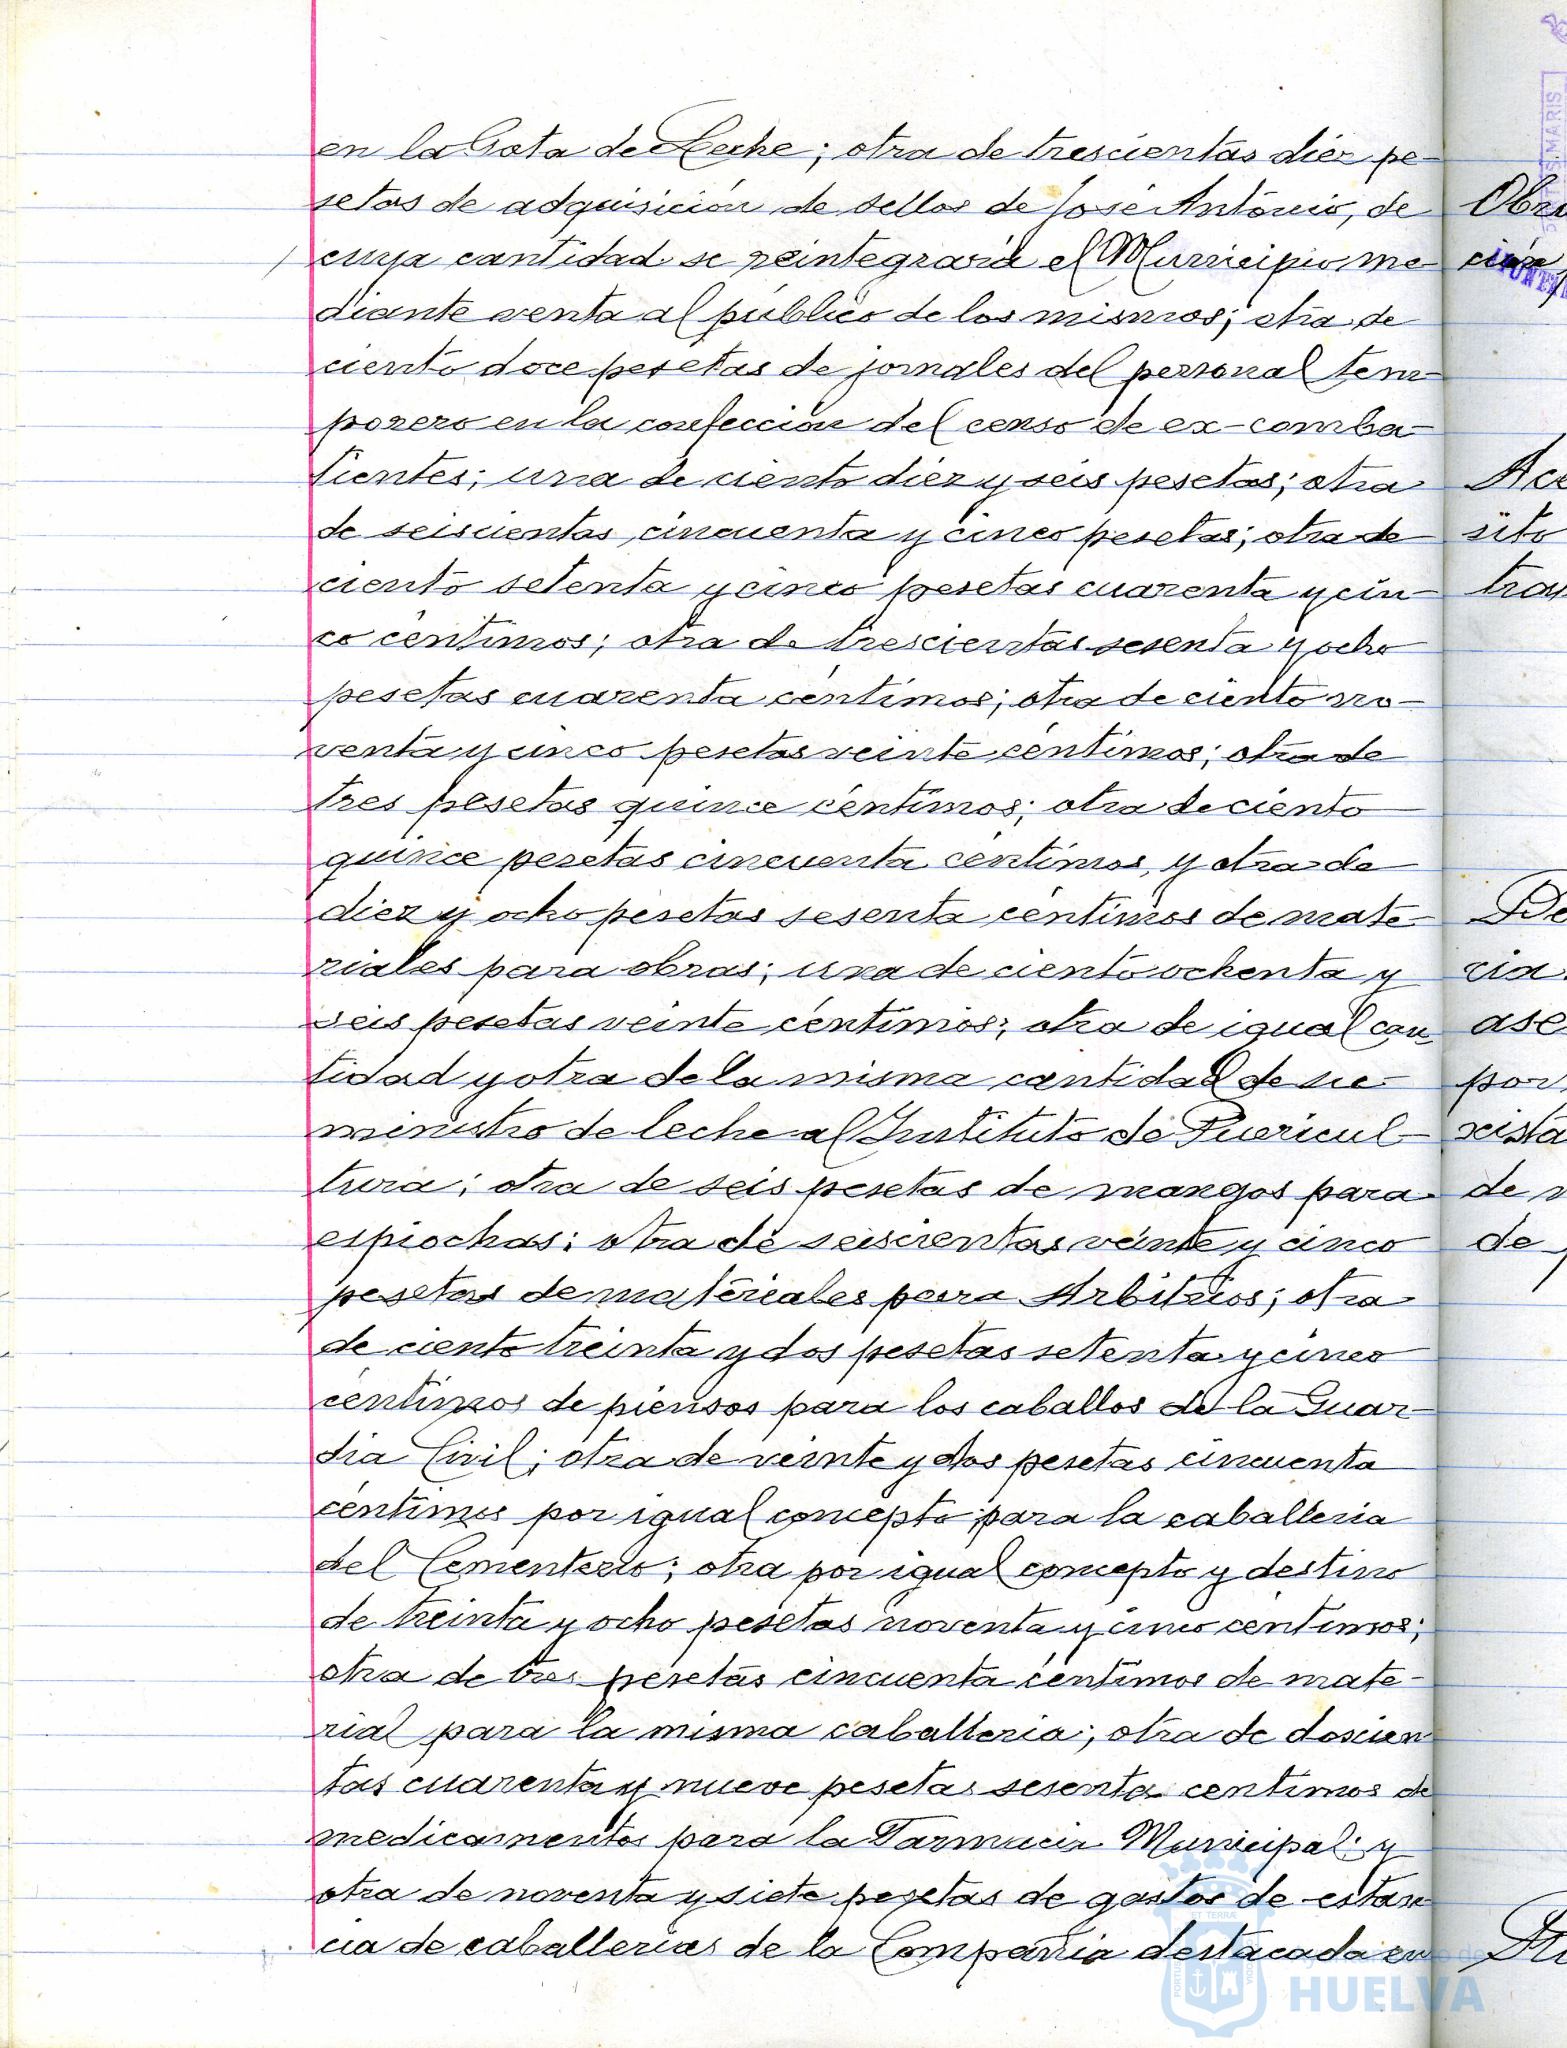 en la Gota de Leche; otra de trescientas diez pe-
setas de adquisición de sellos de José Antonio, de
cuya cantidad se reintegrará el Municipio me-
diante venta al público de los mismos; otra de
ciento doce pesetas de jornales del personal tem-
porero en la confección del censo de ex-comba-
tientes; una de ciento diez y seis pesetas; otra
de seiscientas cincuenta y cinco pesetas; otra de
ciento setenta y cinco pesetas cuarenta y cin-
co centimos; otra de trescientas sesenta y ocho
pesetas cuarenta centimos; otra de ciento no-
venta y cinco pesetas veinte centimos; otra de
tres pesetas quince centimos; otra de ciento
quince pesetas cincuenta centimos, y otra de
diez y ocho pesetas sesenta centimos de mate-
riales para obras; una de ciento ochenta y
seis pesetas veinte centimos; otra de igual can
tidad y otra de la misma cantidad de su-
ministro de leche al Instituto de Puericul-
tura; otra de seis pesetas de mangos para
espiochas; otra de seiscientas veinte y cinco
pesetas de materiales para Arbitrios; otra
de ciento treinta y dos pesetas setenta y cinco
centimos de piensos para los caballos de la Guar-
dia Civil; otra de veinte y dos pesetas cincuenta
centimos por igual concepto para la caballeria
del Cementerio; otra por igual concepto y destino
de treinta y ocho pesetas noventa y cinco centimos;
otra de tres pesetas cincuenta centimos de mate-
rial para la misma caballeria; otra de doscien
tas cuarenta y nueve pesetas sesenta centimos de
medicamentos para la Farmacia Municipal; y
otra de noventa y siete pesetas de gastos de estan
cia de caballerias de la Compañia destacada en
Obra
Ace
sito
tras
De
cia
ase
por
de
de
HUELVA